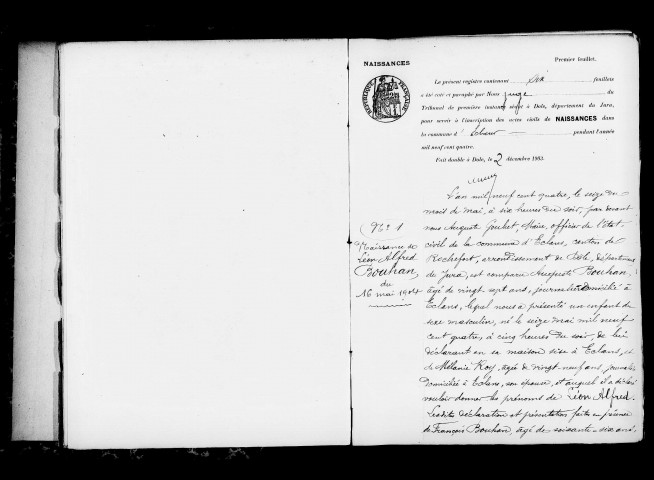 NAISSANCES
Premier feuillet.
RÉPUBLIQUE FRANÇAISE
Le présent registre contenant six feuillets
a été coté et paraphé par Nous juge du
Tribunal de première instance séant à Dole, département du Jura,
pour servir à l'inscription des actes civils de NAISSANCES dans
la commune d' Eclans pendant l'année
mil neuf cent quatre.
Fait double à Dole, le 2 décembre 1903.
L'an mil neuf cent quatre, le seize du
mois de mai, à six heures du soir, par devant
nous Auguste Goubet, Maire, officier de l'état
civil de la commune d'Eclans, canton de
Rochefort, arrondissement de Dole, département
du Jura, est comparu Auguste Bouhan,
âgé de vingt sept ans, journalier domicilié à
Eclans, lequel nous a présenté un enfant du
sexe masculin, né le seize mai mil neuf
cent quatre, à cinq heures du soir, de lui
déclarant en sa maison sise à Eclans, et
de Mélanie Roy, âgée de vingt-neuf ans, journalière
domiciliée à Eclans, son épouse, et auquel il a déclaré
vouloir donner les prénoms de Léon Alfred.
Lesdites déclaration et présentation faites en présence
de François Bouhan, âgé de soixante-six ans,
No 1
Naissance de
Léon Alfred
Bouhan,
du
16 mai 1904